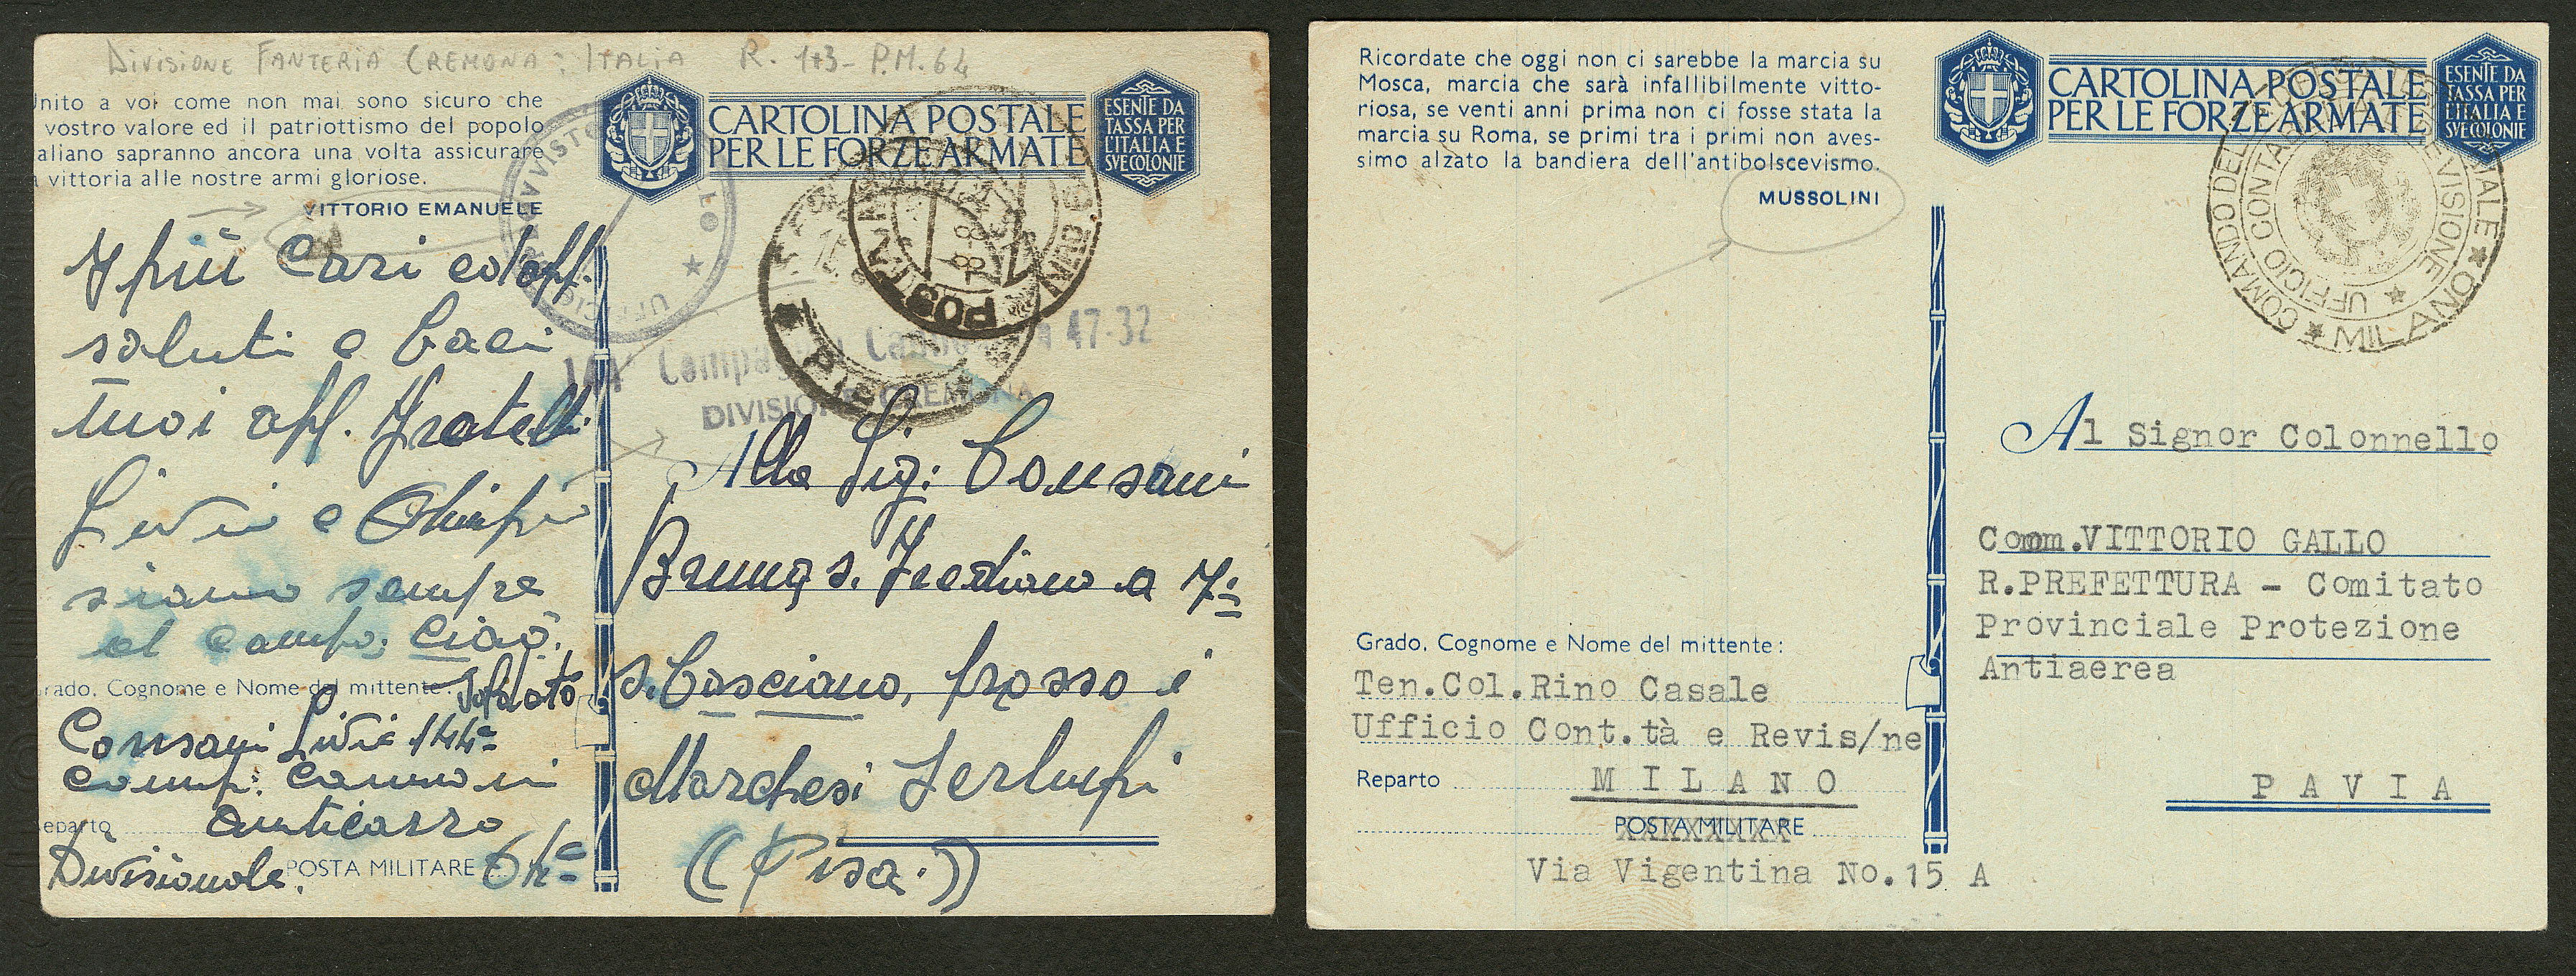 DIVISIONE FANTERIA CREMONA: ITALIA R. 1+3- P.M. 64
Unito a voi come non mai sono sicuro che
vostro valore ed il patriottismo del popolo
aliano sapranno ancora una volta assicurare
vittoria alle nostre armi gloriose.
VITTORIO EMANUELE
CARTOLINA POSTALE
PER LE FORZE ARMATE
ESENTE DA
TASSA PER
L'ITALIA E
SVE COLONIE
I più Cari ed aff.
saluti e baci
tuoi aff. Fratelli
Livio e
siamo sempre
al campo. Ciaò.
rado, Cognome e Nome del mittente: Soldato
Consani Livio 144ª
comp. Cannoni
eparto anticarro
Divisionale. POSTA MILITARE 64ª
POSTA
47-32
DIVISIONE CREMONA
Alla Sig: Consani
Bruna S. Frediano a 7:
S. Casciano, presso i
Marchesi Serlupi
(Pisa.)
Ricordate che oggi non ci sarebbe la marcia su
Mosca, marcia che sarà infallibilmente vitto-
riosa, se venti anni prima non ci fosse stata la
marcia su Roma, se primi tra i primi non aves-
simo alzato la bandiera dell'antibolscevismo.
MUSSOLINI
CARTOLINA POSTALE
PER LE FORZE ARMATE
ESENTE DA
TASSA PER
L'ITALIA E
SVE COLONIE
COMANDO DEL
MILANO
UFFICIO CONTABILITÀ E REVISIONE
Al Signor Colonnello
Comm.VITTORIO GALLO
R.PREFETTURA - Comitato
Provinciale Protezione
Antiaerea
P A V I A
Grado, Cognome e Nome del mittente:
Ten.Col.Rino Casale
Ufficio Cont.tà e Revis/ne
Reparto M I L A N O
POSTA MILITARE
Via Vigentina No.15 A